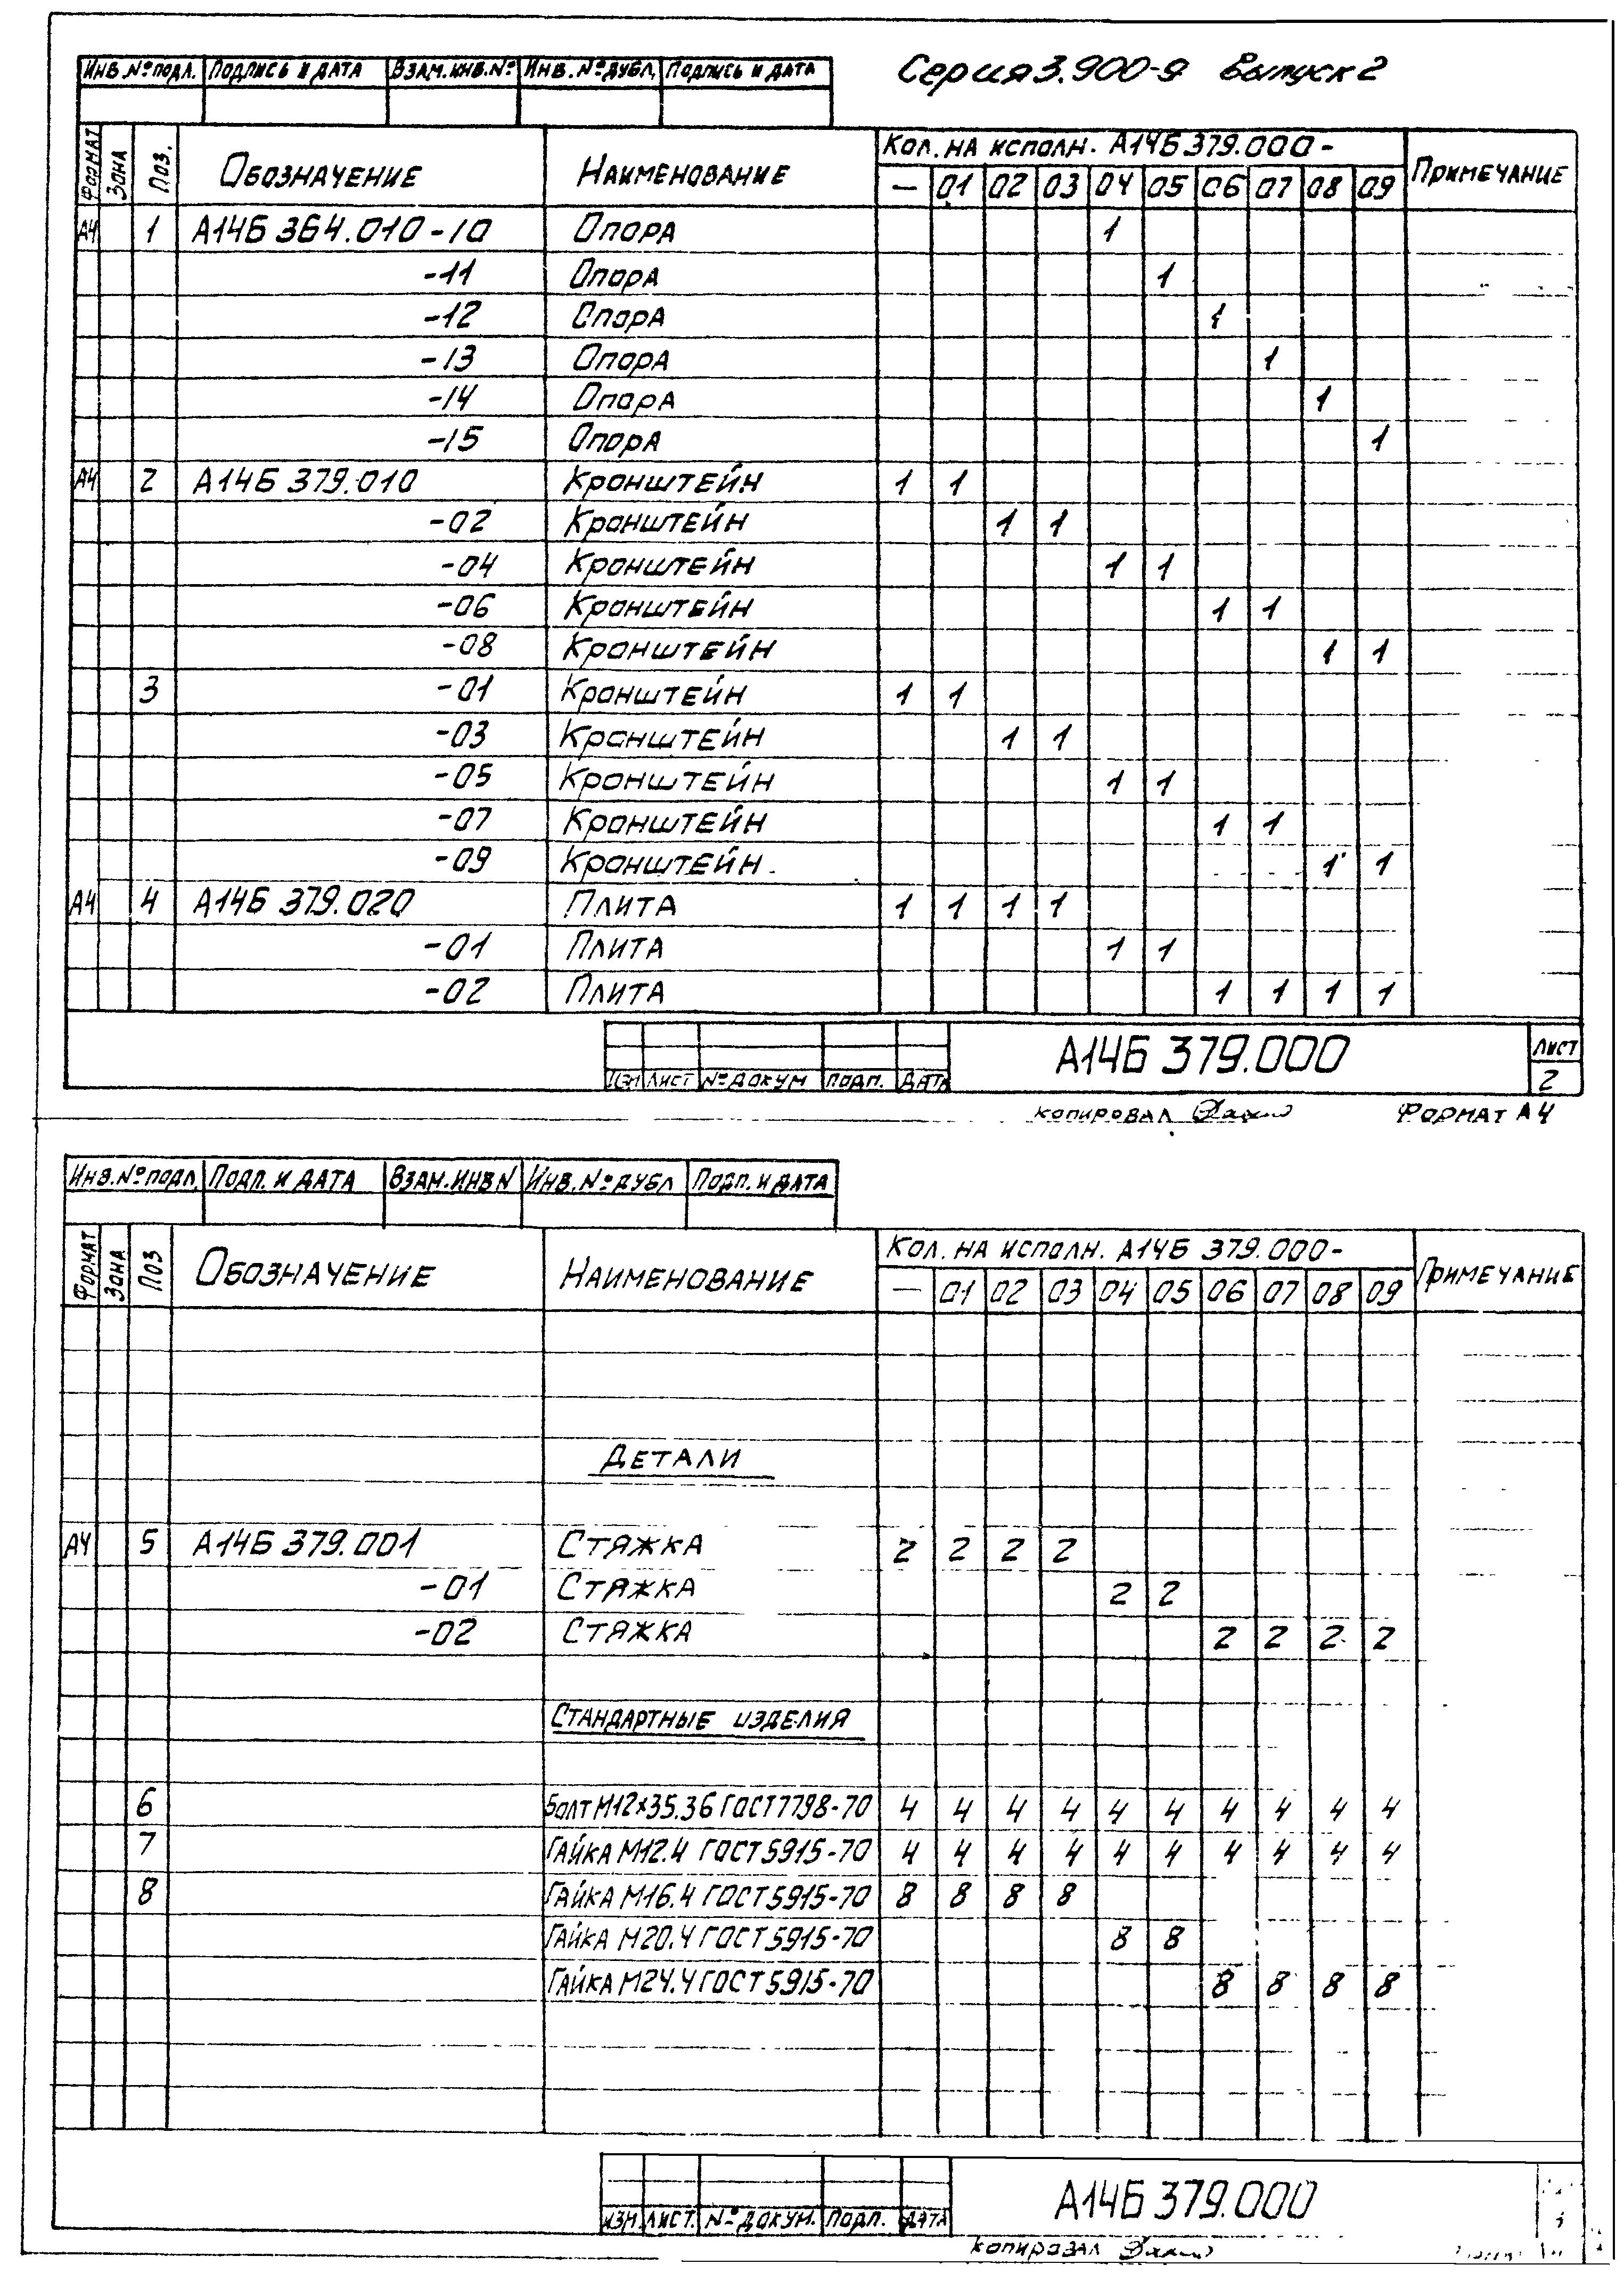 Серия 3.900-9 Выпуск 2
Инв.№ подл. Подпись и дата Взам.инв.№ Инв.№ дубл. Подпись и дата
Формат Зона Поз. Обозначение Наименование Кол. на исполн. А14Б 379.000- Примечание
— 01 02 03 04 05 06 07 08 09
А4 1 А14Б 364.010-10 Опора 1
-11 Опора 1
-12 Опора 1
-13 Опора 1
-14 Опора 1
-15 Опора 1
А4 2 А14Б 379.010 Кронштейн 1 1
-02 Кронштейн 1 1
-04 Кронштейн 1 1
-06 Кронштейн 1 1
-08 Кронштейн 1 1
3 -01 Кронштейн 1 1
-03 Кронштейн 1 1
-05 Кронштейн 1 1
-07 Кронштейн 1 1
-09 Кронштейн 1 1
А4 4 А14Б 379.020 Плита 1 1 1 1
-01 Плита 1 1
-02 Плита 1 1 1 1
Изм Лист № докум Подп. Дата А14Б 379.000 Лист 2
копировал Формат А4
Инв.№ подл. Подп. и дата Взам.инв N Инв.№ дубл Подп. и дата
Формат Зона Поз Обозначение Наименование Кол. на исполн. А14Б 379.000- Примечание
— 01 02 03 04 05 06 07 08 09
Детали
А4 5 А14Б 379.001 Стяжка 2 2 2 2
-01 Стяжка 2 2
-02 Стяжка 2 2 2 2
Стандартные изделия
6 Болт М12×35.36 ГОСТ 7798-70 4 4 4 4 4 4 4 4 4 4
7 Гайка М12.4 ГОСТ 5915-70 4 4 4 4 4 4 4 4 4 4
8 Гайка М16.4 ГОСТ 5915-70 8 8 8 8
Гайка М20.4 ГОСТ 5915-70 8 8
Гайка М24.4 ГОСТ 5915-70 8 8 8 8
Изм. Лист. № докум. Подп. Дата А14Б 379.000
копировал